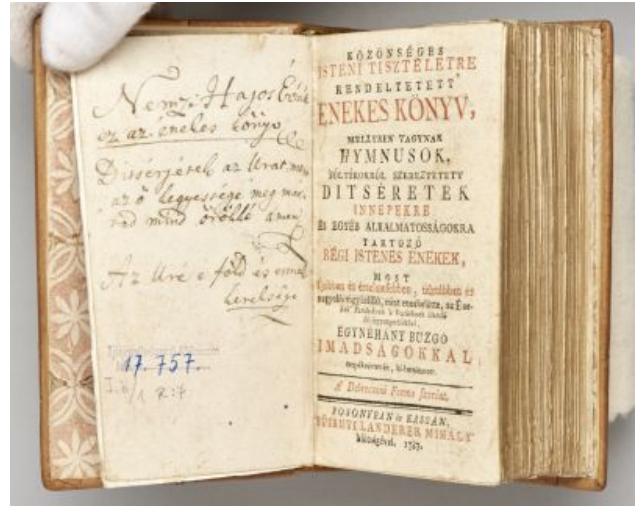 Nemz: Hajos Évák
ez az énekes könyv
Ditsérjétek az Urat mert
az ő kegyessége meg mar-
rad mind örökké amen
Az Uré e föld és ennek
kereksége
17.757.
KÖZÖNSÉGES
ISTENI TISZTELETRE
RENDELTETETT
ÉNEKES KÖNYV,
MELLYBEN VAGYNAK
HYMNUSOK,
'SOLTÁROKBÓL SZEREZTETETT
DITSÉRETEK
INNEPEKRE
ÉS EGYÉB ALKALMATOSSÁGOKRA
TARTOZÓ
RÉGI ISTENES ÉNEKEK,
MOST
EGYNÉHÁNY BUZGÓ
IMADSÁGOKKAL
A Debreczeni Forma szerint.
POSONYBAN és KASSÁN,
FÜSKÚTI LANDERER MIHÁLY
költségével. 1787.